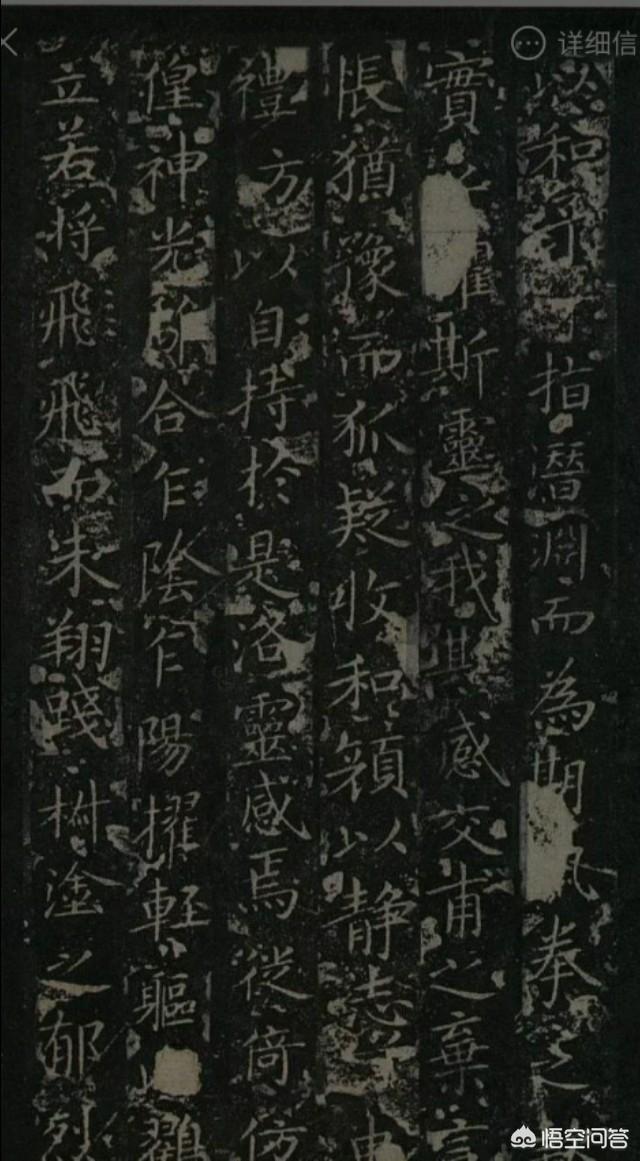 详细信
以和予兮指潛淵而為期執奉之
實兮懼斯靈之我感交甫之棄言
悵猶豫而狐疑收和顏以静志兮申
禮方以自持於是洛靈感焉徙倚仿
偟神光合乍陰乍陽擢輕軀以
立若将飛飛而未翔踐塗之郁列
悟空问答